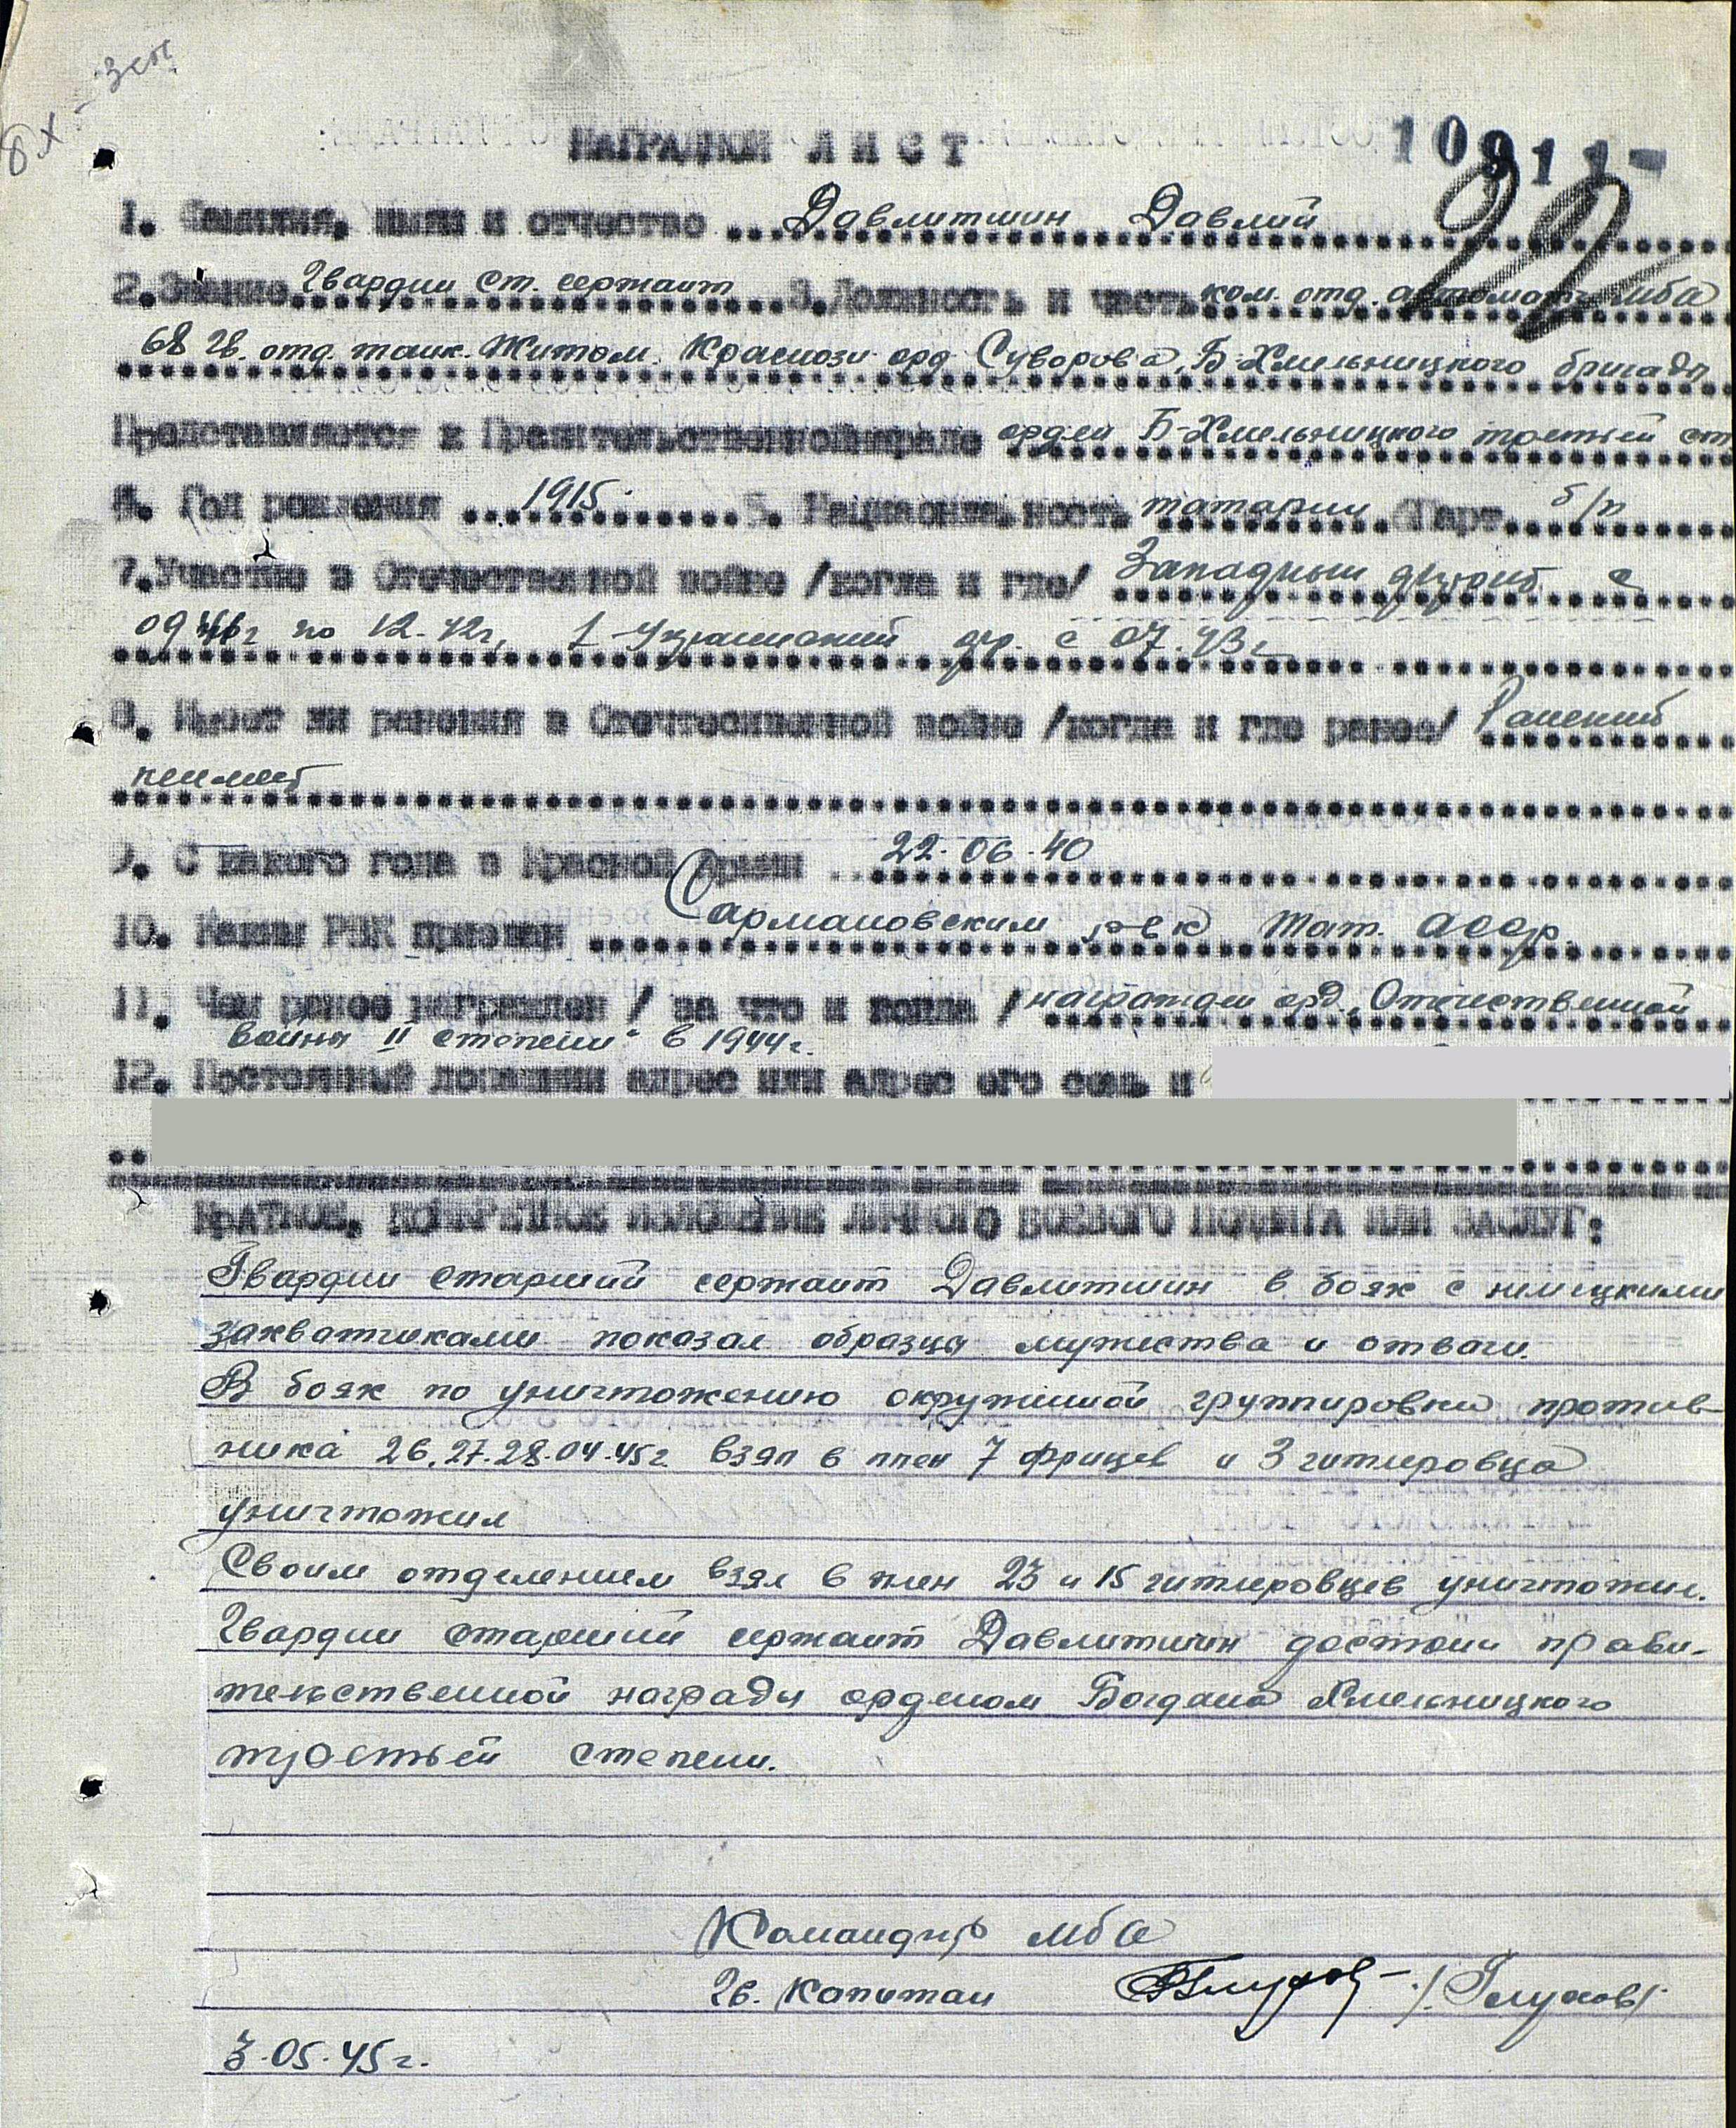 8х - Зсп
НАГРАДНОЙ ЛИСТ
10911-
22
1. Фамилия, имя и отчество ... Давлитшин Давлий
2. Звание Гвардии ст. сержант 3. Должность и часть ком. отд. автомат. мба
68 гв. отд. танк. Житом. Красноз. орд Суворова, Б-Хмельницкого бригады
Представляется к Правительственной награде орден Б-Хмельницкого третьей ст
4. Год рождения ... 1915. 5. Национальность татарин 6 Парт. б/п
7. Участие в Отечественной войне /когда и где/ Западный фронт с
09 41г по 12-42г, 1-Украинский фр. с 07.43г
8. Имеет ли ранения в Отечественной войне /когда и где ранее/ Ранений
не имеет
9. С какого года в Красной Армии .. 22.06.40
10. Каким РВК призван Сармановским рвк Тат. АССР.
11. Чем ранее награжден / за что и когда / награжден орд. „Отечественной
войны II степени" в 1944г.
12. Постоянный домашний адрес или адрес его семьи
КРАТКОЕ, КОНКРЕТНОЕ ИЗЛОЖЕНИЕ ЛИЧНОГО БОЕВОГО ПОДВИГА ИЛИ ЗАСЛУГ:
Гвардии старший сержант Давлитшин в боях с немецкими
захватчиками показал образцы мужества и отваги.
В боях по уничтожению окруженной группировки против-
ника 26.27.28.04.45г взял в плен 7 фрицев и 3 гитлеровца
уничтожил
Своим отделением взял в плен 23 и 15 гитлеровцев уничтожил.
Гвардии старший сержант Давлитшин достоин прави-
тельственной награды орденом Богдана Хмельницкого
третьей степени.
Командир мба
Гв. капитан /Глухов/
3.05.45г.